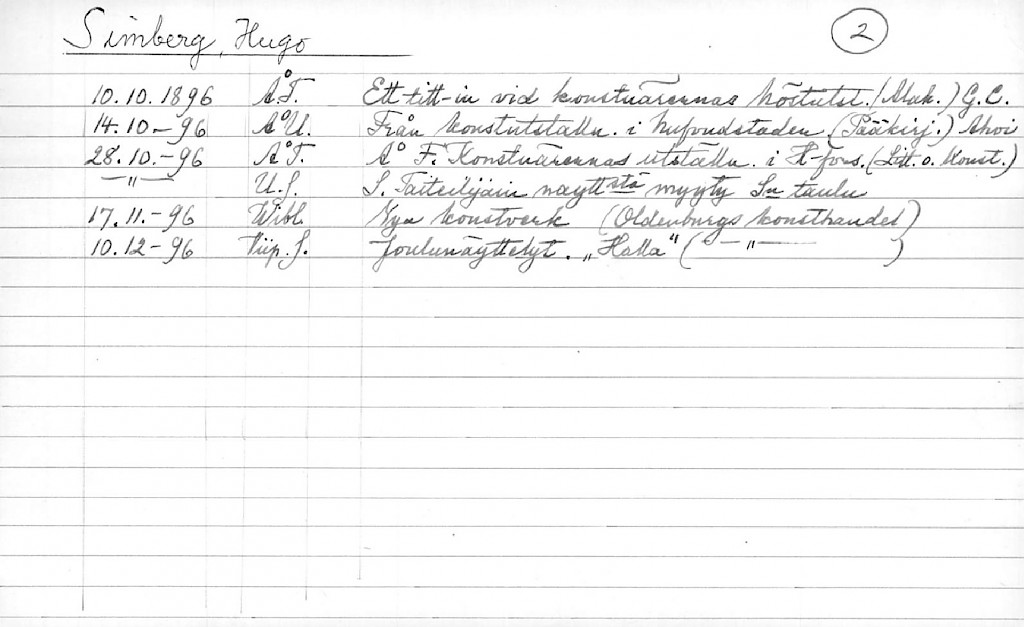 Simberg, Hugo
2
10.10.1896 Å.T. Ett titt-in vid konstnärernas höstutst. (Alak.) G.C.
14.10-96 Å U. Från konstutställn. i hufvudstaden (Pääkirj.) Ahoi
28.10.-96 Å.T. Å F. Konstnärernas utställn. i H-fors. (Litt. o. Konst.)
—"— U.S. S. Taiteilijain näytt.stä myyty S:n taulu
17.11.-96 Wibl. Nya konstverk (Oldenburgs konsthandel)
10.12-96 Viip.S. Joulunäyttelyt. „Halla" ( —"— )